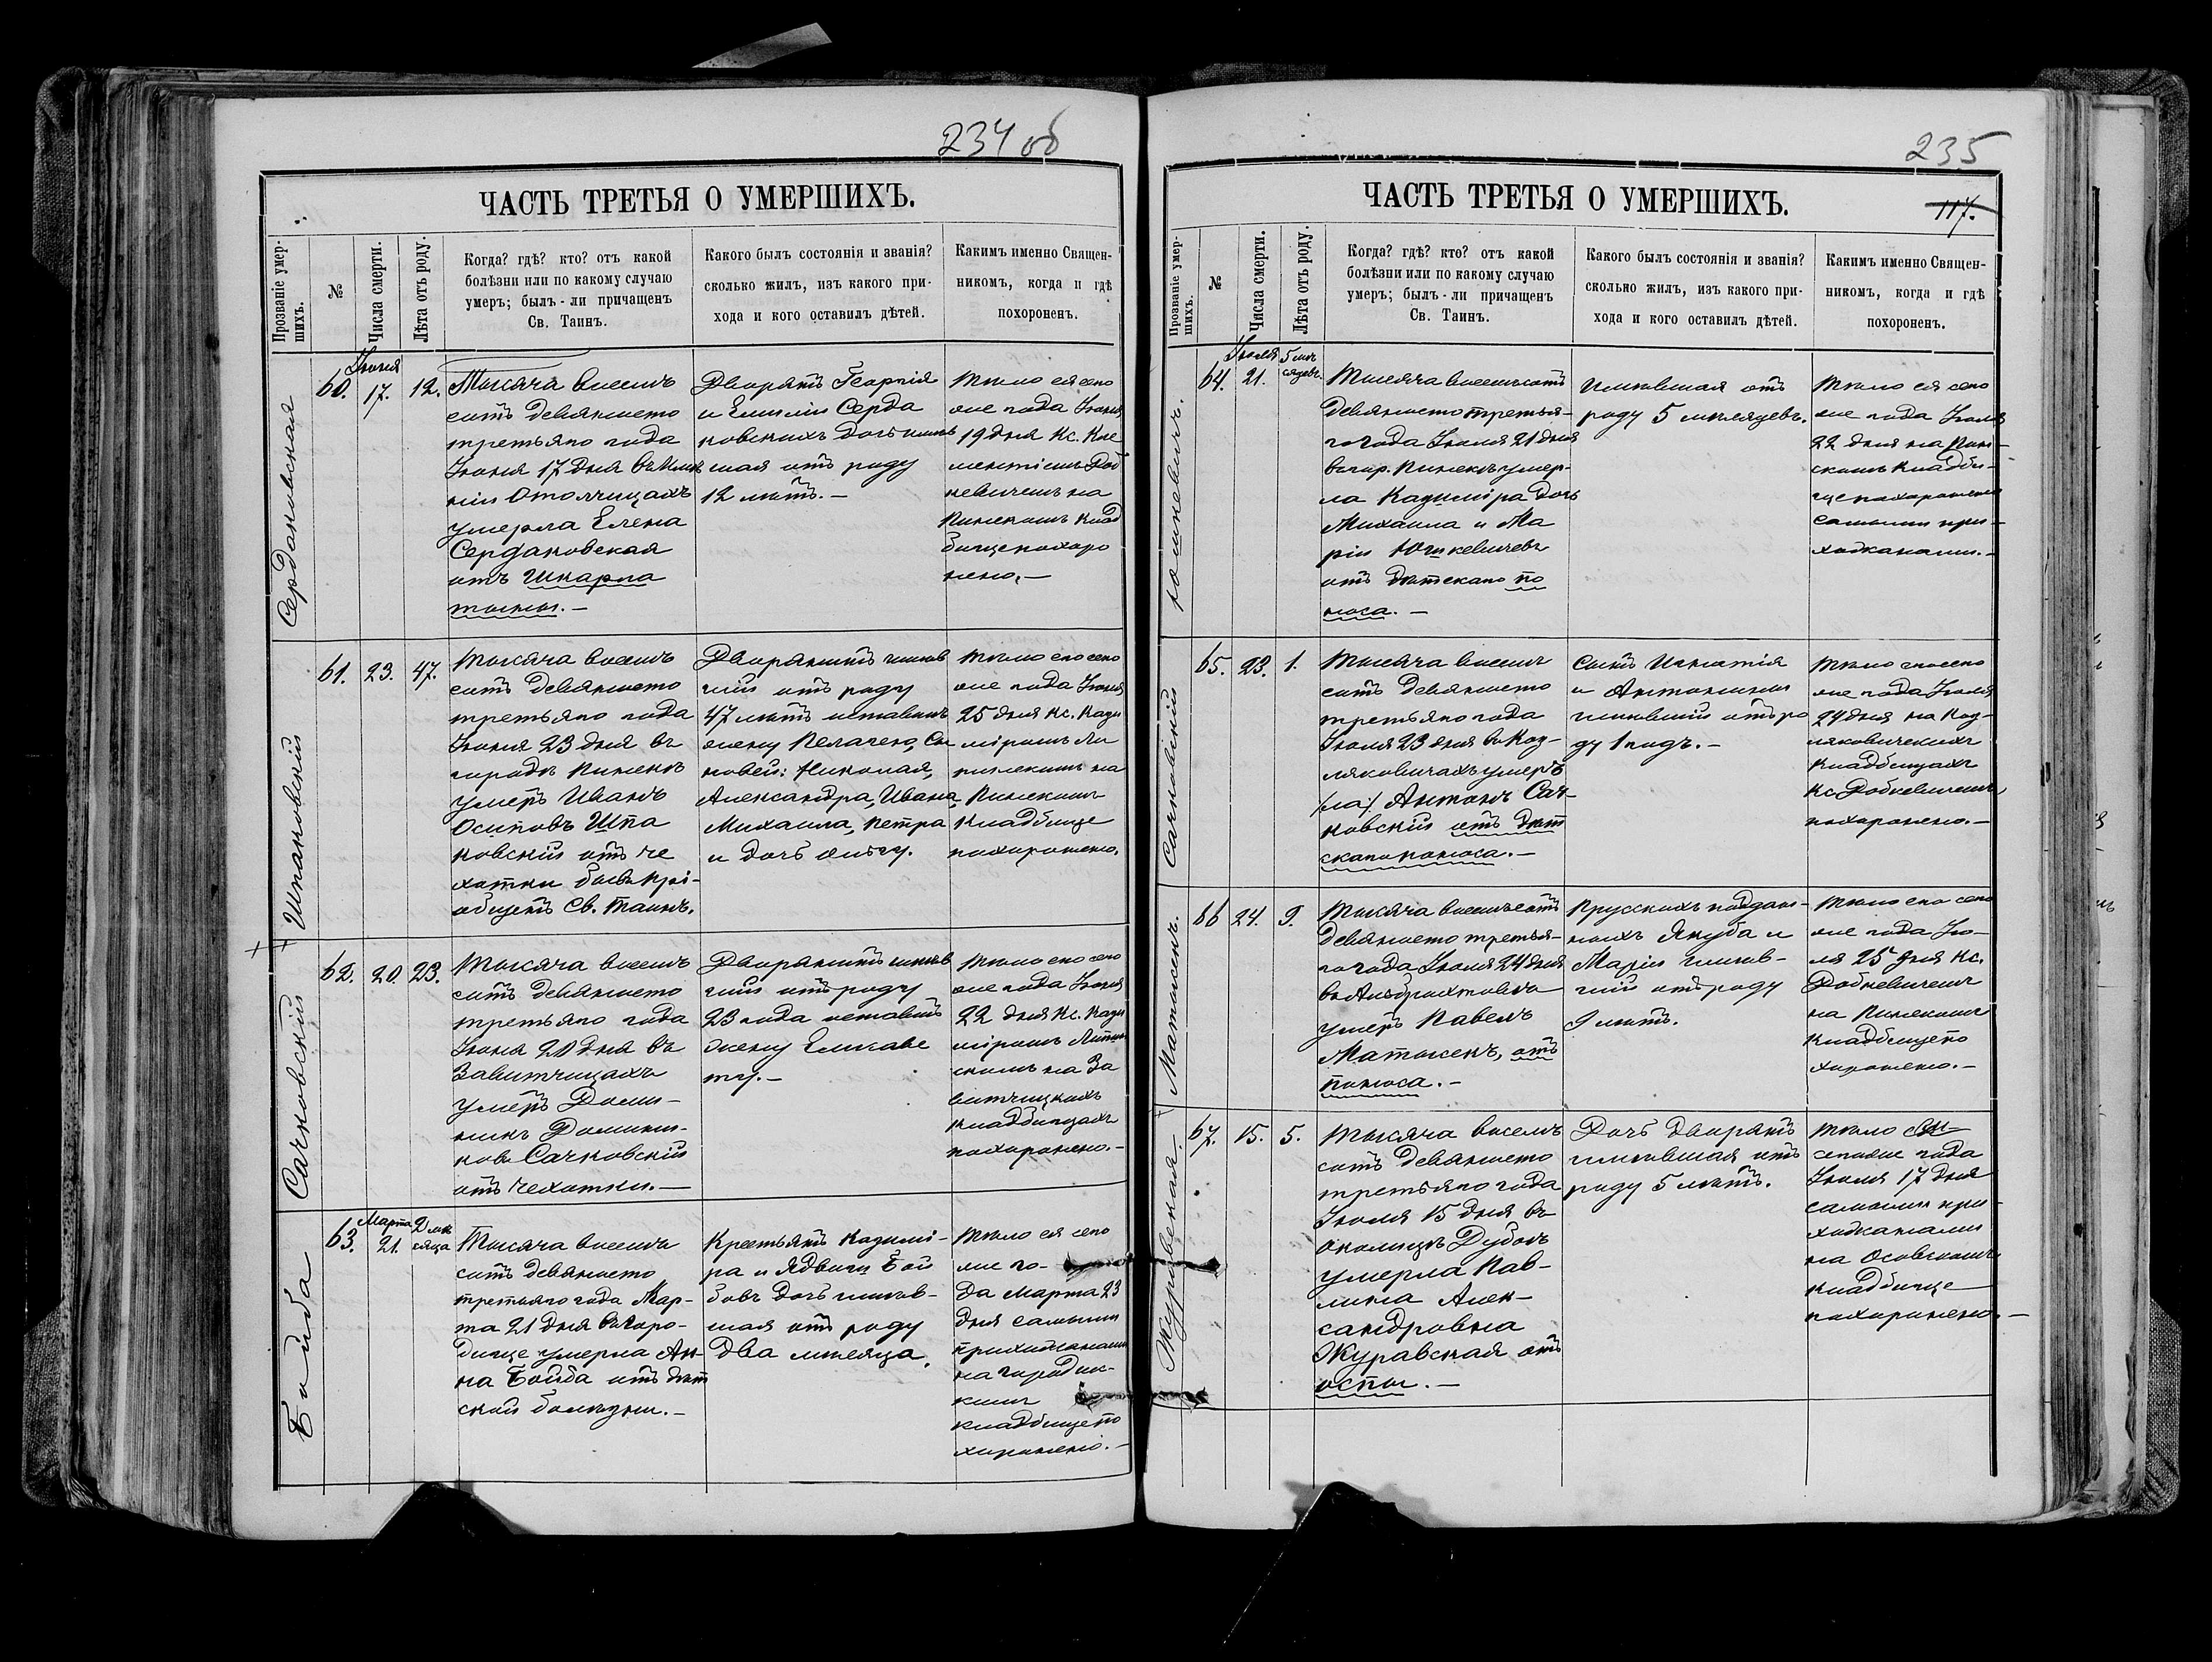 234 об
ЧАСТЬ ТРЕТЬЯ О УМЕРШИХЪ.
Прозваніе умер-
шихъ.
№
Числа смерти.
Лѣта отъ роду.
Когда? гдѣ? кто? отъ какой
болѣзни или по какому случаю
умеръ; былъ - ли причащенъ
Св. Таинъ.
Какого былъ состоянія и званія?
сколько жилъ, изъ какого при-
хода и кого оставилъ дѣтей.
Какимъ именно Священ-
никомъ, когда и гдѣ
похороненъ.
Сердаковская
60.
Іюня
17.
12.
Тысяча восемь
сотъ девяносто
третьяго года
Іюня 17 дня въ
Отолчицахъ
умерла Елена
Сердаковская
отъ шкарла
тыны. —
Дворянъ Георгія
и Емиліи Серда
ковскихъ дочь
шая отъ роду
12 лѣтъ. —
тѣло ея сего
же года Іюня
19 дня Кс. Кле
ментіемъ Доб
кевичемъ на
Пинскомъ клад
бище похоро
нено. —
Шпаковскій
61.
23.
47.
Тысяча восемь
сотъ девяносто
третьяго года
Іюня 23 дня въ
городѣ Пинскѣ
умеръ Иванъ
Осиповъ Шпа
ковскій отъ че
хотки бывъ прі-
общенъ Св. Таинъ.
Дворянинъ имѣв
шій отъ роду
47 лѣтъ оставивъ
жену Пелагею, сы
новей: Николая,
Александра, Ивана,
Михаила, Петра
и дочь Ольгу.
тѣло его сего
же года Іюня
25 дня Кс. Кази
міромъ Ли
пинскимъ на
Пинскомъ
кладбище
похоронено.
Сачковскій
62.
20.
23.
Тысяча восемь
сотъ девяносто
третьяго года
Іюня 20 дня въ
Завитчицахъ
умеръ Доми-
никъ Домини-
ковъ Сачковскій
отъ чехотки. —
Дворянинъ имѣв
шій отъ роду
23 года оставивъ
жену Елизаве
ту. —
тѣло его сего
же года Іюня
22 дня Кс. Кази
міромъ Липин
скимъ на За
витчицкихъ
кладбищахъ
похоронено. —
Бойба
63.
Марта
21.
2 мѣ
сяца
Тысяча восемь
сотъ девяносто
третьяго года Мар-
та 21 дня въ Горо-
дище умерла Ан-
на Бойба отъ дѣт
ской болѣзни. —
Крестьянъ Казимі-
ра и Ядвиги Бой
бовъ дочь имѣв-
шая отъ роду
два мѣсяца.
тѣло ея сего
же го-
да Марта 23
дня самыми
прихожанами
на Городис-
комъ
кладбище по
хоронено. —
235
117.
ЧАСТЬ ТРЕТЬЯ О УМЕРШИХЪ.
Прозваніе умер-
шихъ.
№
Числа смерти.
Лѣта отъ роду.
Когда? гдѣ? кто? отъ какой
болѣзни или по какому случаю
умеръ; былъ - ли причащенъ
Св. Таинъ.
Какого былъ состоянія и званія?
сколько жилъ, изъ какого при-
хода и кого оставилъ дѣтей.
Какимъ именно Священ-
никомъ, когда и гдѣ
похороненъ.
Юшкевичъ.
64.
Іюля
21.
5 мѣ
сяцевъ.
Тысяча восемьсотъ
девяносто третья-
го года Іюля 21 дня
въ гор. Пинскѣ умер-
ла Казиміра дочь
Михаила и Ма
ріи Юшкевичевъ
отъ дѣтскаго по
носа. —
имѣвшая отъ
роду 5 мѣсяцевъ.
тѣло ея сего
же года Іюля
22 дня на Пин-
скомъ кладби-
ще похоронено
самыми при-
хожанами. —
Сачковскій
65.
23.
1.
Тысяча восемь
сотъ девяносто
третьяго года
Іюля 23 дня въ Коз-
ляковичахъ умеръ
/ла/. Антонъ Сач-
ковскій отъ дѣт
скаго поноса. —
Сынъ Игнатія
и Антонины
имѣвшій отъ ро
ду 1 годъ. —
тѣло его сего
же года Іюля
24 дня на Коз-
ляковичскихъ
кладбищахъ
Кс. Добкевичемъ
похоронено. —
Матысекъ.
66
24.
9.
Тысяча восемьсотъ
девяносто третья-
го года Іюля 24 дня
въ Альбрихтовѣ
умеръ Павелъ
Матысекъ, отъ
поноса. —
Прусскихъ поддан-
ныхъ Якуба и
Маріи имѣв-
шій отъ роду
9 лѣтъ.
тѣло его сего
же года Ію-
ля 25 дня Кс.
Добкевичемъ
на Пинскомъ
кладбище по
хоронено. —
Журавская.
67.
15.
5.
Тысяча восемь
сотъ девяносто
третьяго года
Іюля 15 дня въ
околицѣ Дубой
умерла Пав-
лина Алек-
сандровна
Журавская отъ
оспы. —
Дочь дворянъ
имѣвшая отъ
роду 5 лѣтъ.
тѣло
сегоже года
Іюля 17 дня
самыми при
хожанами
на Осовскомъ
кладбище
похоронено. —